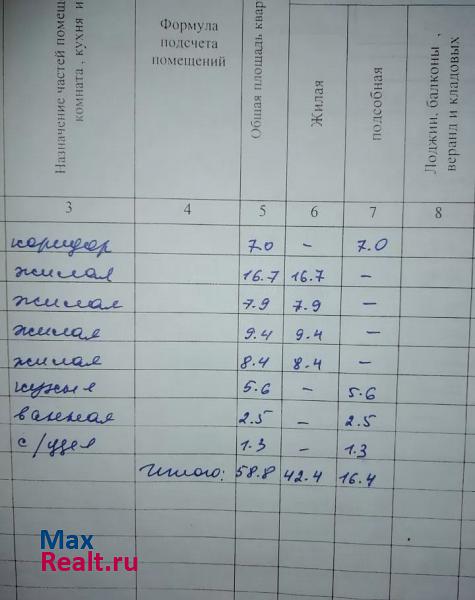 Назначение частей помещ
комната, кухня и
Формула
подсчета
помещений
Общая площадь квар
Жилая
подсобная
Лоджии, балконы,
веранд и кладовых
3 4 5 6 7 8
коридор 7.0 – 7.0
жилая 16.7 16.7 –
жилая 7.9 7.9 –
жилая 9.4 9.4 –
жилая 8.4 8.4 –
кухня 5.6 – 5.6
ванная 2.5 – 2.5
с/узел 1.3 – 1.3
Итого: 58.8 42.4 16.4
Max
Realt.ru